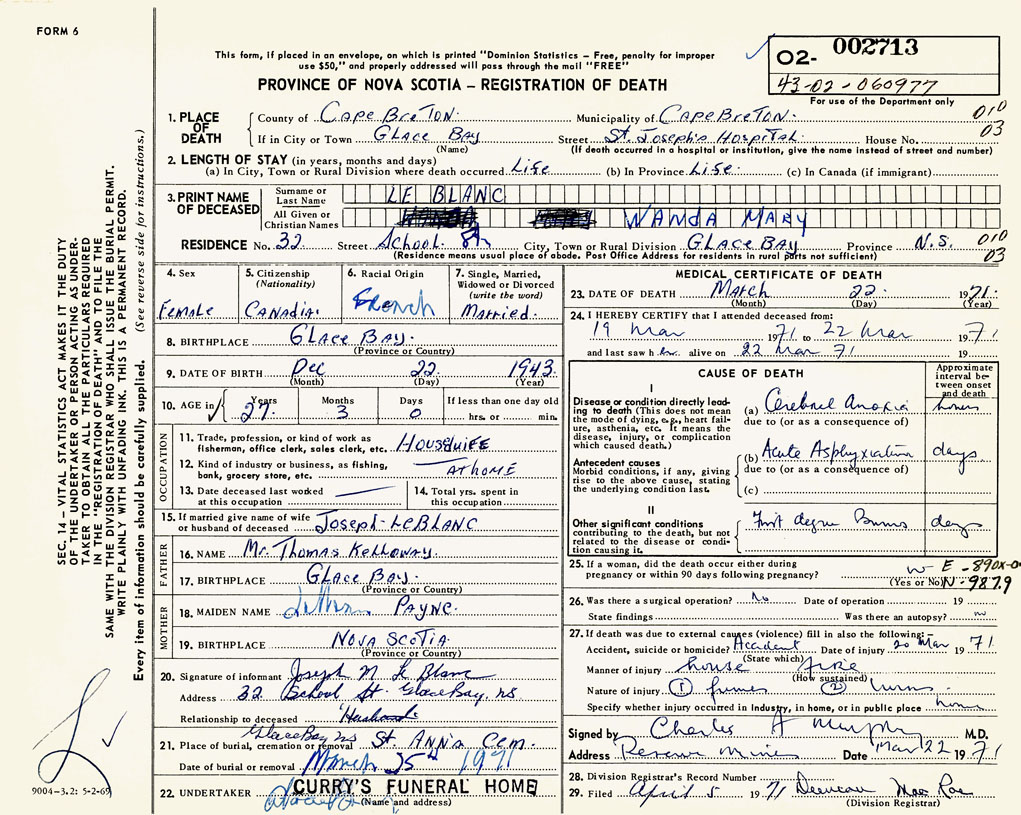 FORM 6
This form, if placed in an envelope, on which is printed "Dominion Statistics – Free, penalty for improper
use $50," and properly addressed will pass through the mail "FREE"
PROVINCE OF NOVA SCOTIA – REGISTRATION OF DEATH
02- 002713
43-02-060977
For use of the Department only
1. PLACE OF DEATH
County of Cape Breton. Municipality of Cape Breton. 010
If in City or Town Glace Bay Street St. Joseph's Hospital. House No. 03
(Name) (If death occurred in a hospital or institution, give the name instead of street and number)
2. LENGTH OF STAY (in years, months and days)
(a) In City, Town or Rural Division where death occurred Life (b) In Province Life. (c) In Canada (if immigrant)
3. PRINT NAME OF DECEASED
Surname or Last Name LE BLANC
All Given or Christian Names WANDA MARY
RESIDENCE No. 32 Street School St. City, Town or Rural Division GLACE BAY Province N.S. 010
(Residence means usual place of abode. Post Office Address for residents in rural parts not sufficient) 03
4. Sex
Female
5. Citizenship
(Nationality)
Canadia.
6. Racial Origin
French
7. Single, Married,
Widowed or Divorced
(write the word)
Married.
8. BIRTHPLACE Glace Bay.
(Province or Country)
9. DATE OF BIRTH Dec 22 1943
(Month) (Day) (Year)
10. AGE in Years Months Days If less than one day old
27. 3 0 hrs. or min.
OCCUPATION
11. Trade, profession, or kind of work as
fisherman, office clerk, sales clerk, etc. Housewife
12. Kind of industry or business, as fishing,
bank, grocery store, etc. At Home
13. Date deceased last worked
at this occupation
14. Total yrs. spent in
this occupation
15. If married give name of wife
or husband of deceased Joseph-LeBlanc
FATHER
16. NAME Mr. Thomas Kelloway.
17. BIRTHPLACE Glace Bay.
(Province or Country)
MOTHER
18. MAIDEN NAME Payne.
19. BIRTHPLACE Nova Scotia.
(Province or Country)
20. Signature of informant Joseph M Le Blanc
Address 32 School St. Glace Bay, ns
Relationship to deceased Husband
Glace Bay ns
21. Place of burial, cremation or removal St Ann's Cem.
Date of burial or removal March 25th 1971
22. UNDERTAKER CURRY'S FUNERAL HOME
(Name and address)
MEDICAL CERTIFICATE OF DEATH
23. DATE OF DEATH March 22 1971.
(Month) (Day) (Year)
24. I HEREBY CERTIFY that I attended deceased from:
19 Mar 1971 to 22 Mar 71
and last saw her alive on 22 Mar 71 19
CAUSE OF DEATH
Approximate
interval be-
tween onset
and death
I
Disease or condition directly lead-
ing to death (This does not mean
the mode of dying, e.g., heart fail-
ure, asthenia, etc. It means the
disease, injury, or complication
which caused death.)
(a) Cerebral Anoxia hours
due to (or as a consequence of)
Antecedent causes
Morbid conditions, if any, giving
rise to the above cause, stating
the underlying condition last.
(b) Acute Asphyxiation days
due to (or as a consequence of)
(c)
II
Other significant conditions
contributing to the death, but not
related to the disease or condi-
tion causing it.
First degree Burns days
25. If a woman, did the death occur either during
pregnancy or within 90 days following pregnancy?
(Yes or No)
E-890X-0
N-9879
26. Was there a surgical operation? No Date of operation 19
State findings Was there an autopsy?
27. If death was due to external causes (violence) fill in also the following:–
Accident, suicide or homicide? Accident Date of injury 20 Mar 1971
(State which)
Manner of injury house fire
(How sustained)
Nature of injury (1) fumes (2) burns
Specify whether injury occurred in industry, in home, or in public place home
Signed by Charles A Murphy M.D.
Address Reserve Mines Date Mar 22 1971
28. Division Registrar's Record Number
29. Filed April 5 1971 Duncan Mac Rae
(Division Registrar)
SEC. 14 – VITAL STATISTICS ACT MAKES IT THE DUTY
OF THE UNDERTAKER OR PERSON ACTING AS UNDER-
TAKER TO OBTAIN ALL THE PARTICULARS REQUIRED
IN THE "REGISTRATION OF DEATH" AND TO FILE THE
SAME WITH THE DIVISION REGISTRAR WHO SHALL ISSUE THE BURIAL PERMIT.
WRITE PLAINLY WITH UNFADING INK. THIS IS A PERMANENT RECORD.
Every item of information should be carefully supplied. (See reverse side for instructions.)
9004-3.2: 5-2-69